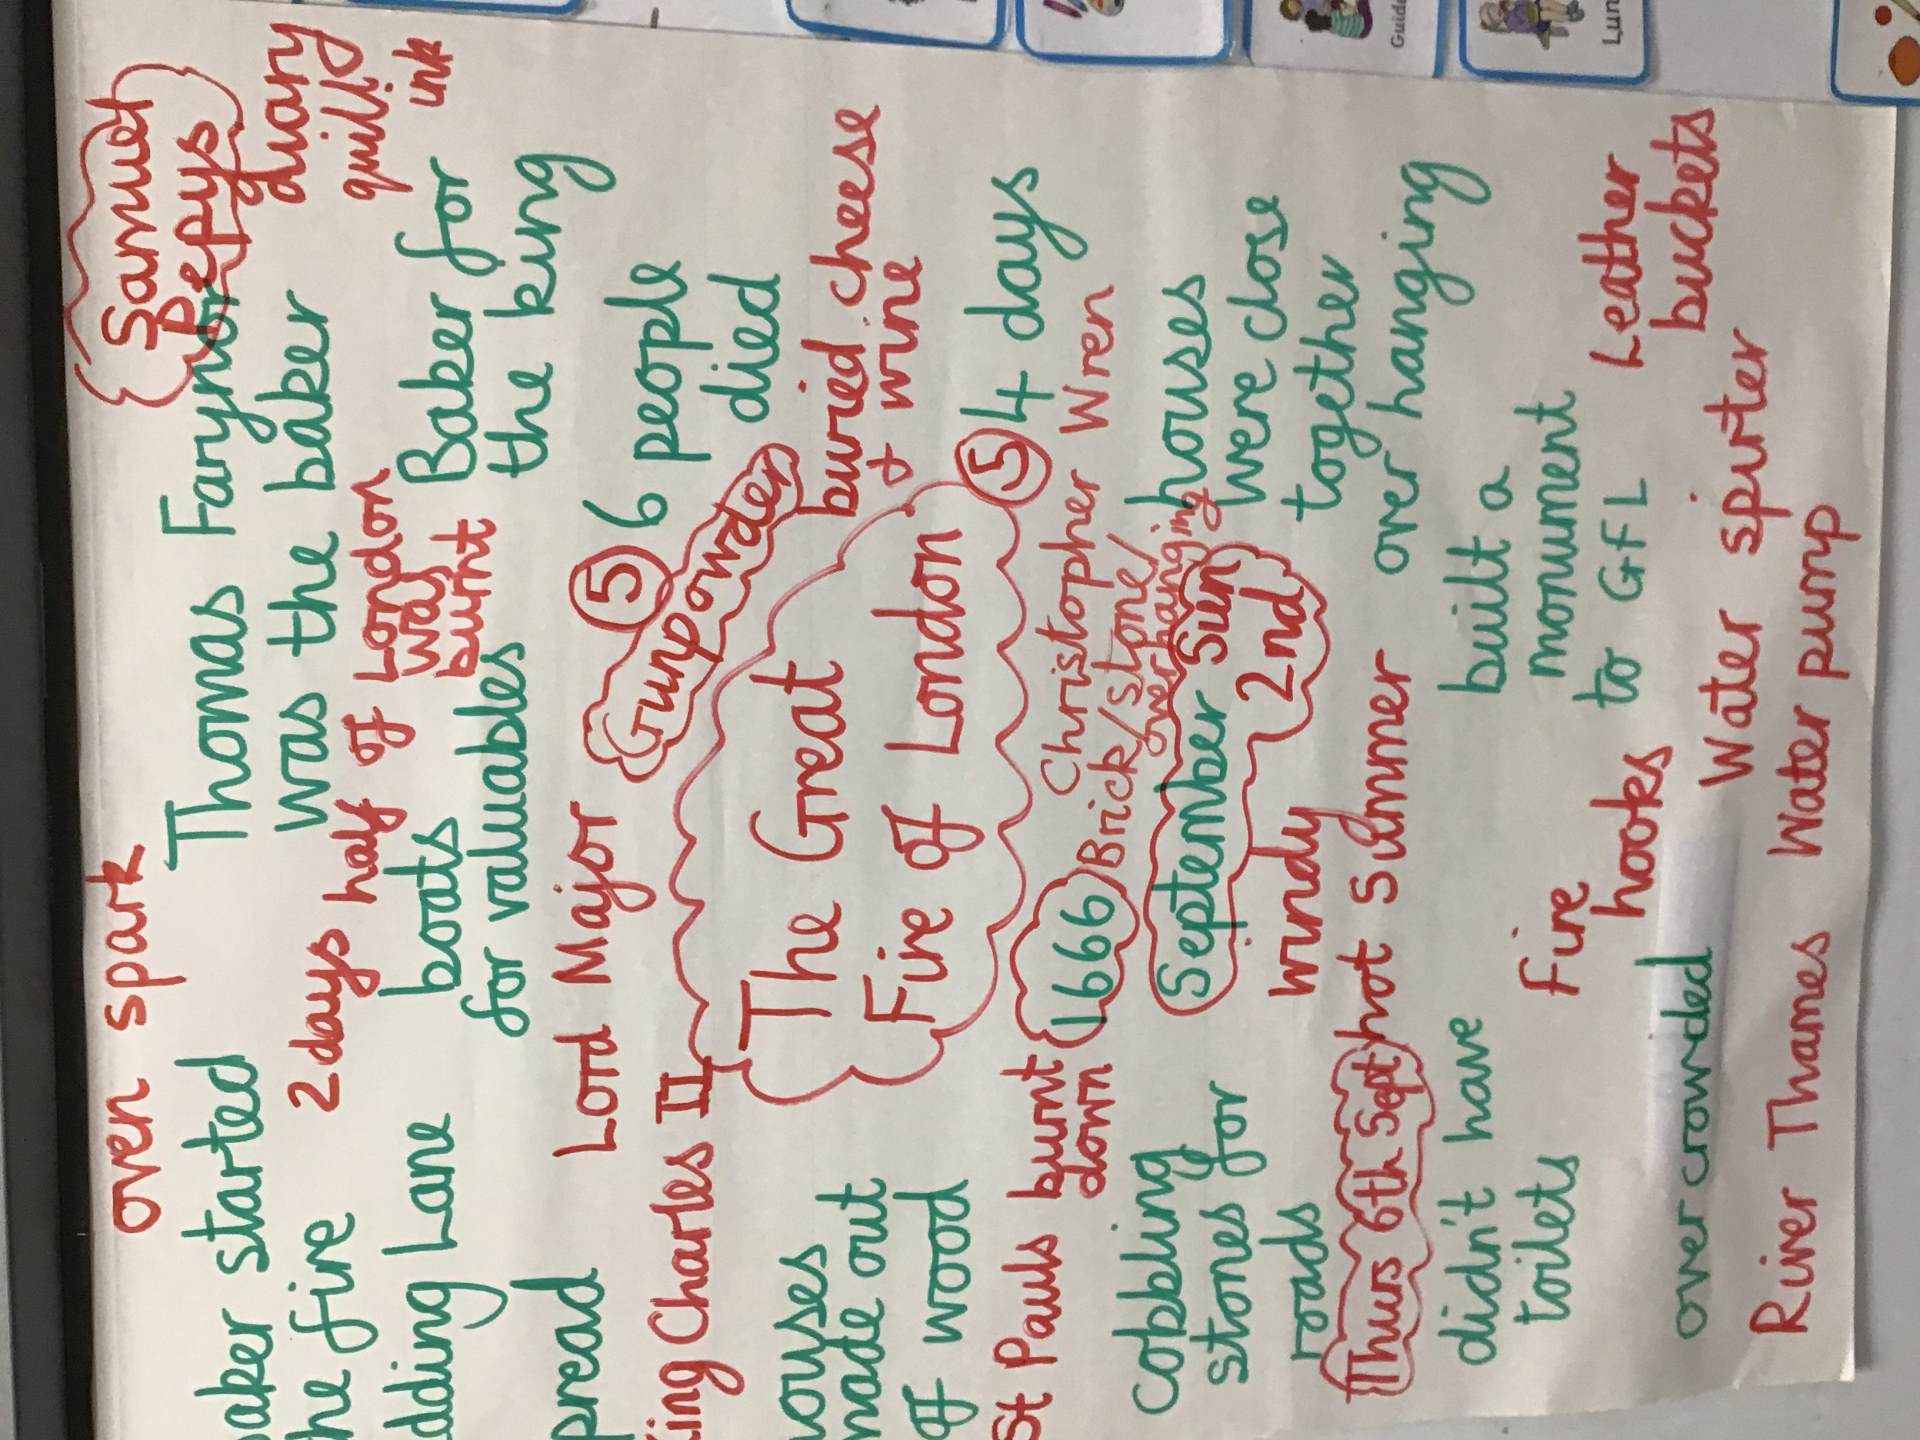 Samuel
Pepys
diary
quill
ink
oven spark
aker started
he fire
dding Lane
pread
Thomas Farynor
was the baker
2 days half of London
was
burnt
boats
for valuables
Baker for
the king
Lord Major
ing Charles II
5
6 people
died
Gunpowder
buried cheese
+ wine
The Great
Fire of London
5
4 days
ouses
made out
of wood
St Pauls burnt
down
1666
Christopher Wren
Brick/stone/
overhanging
September Sun
2nd
houses
were close
together
over hanging
Cobbling
stones for
roads
windy
hot summer
Thurs 6th Sept
didn't have
toilets
built a
monument
to GFL
Fire
hooks
Leather
buckets
over crowded
Water spurter
River Thames
Water pump
Guide
Lun